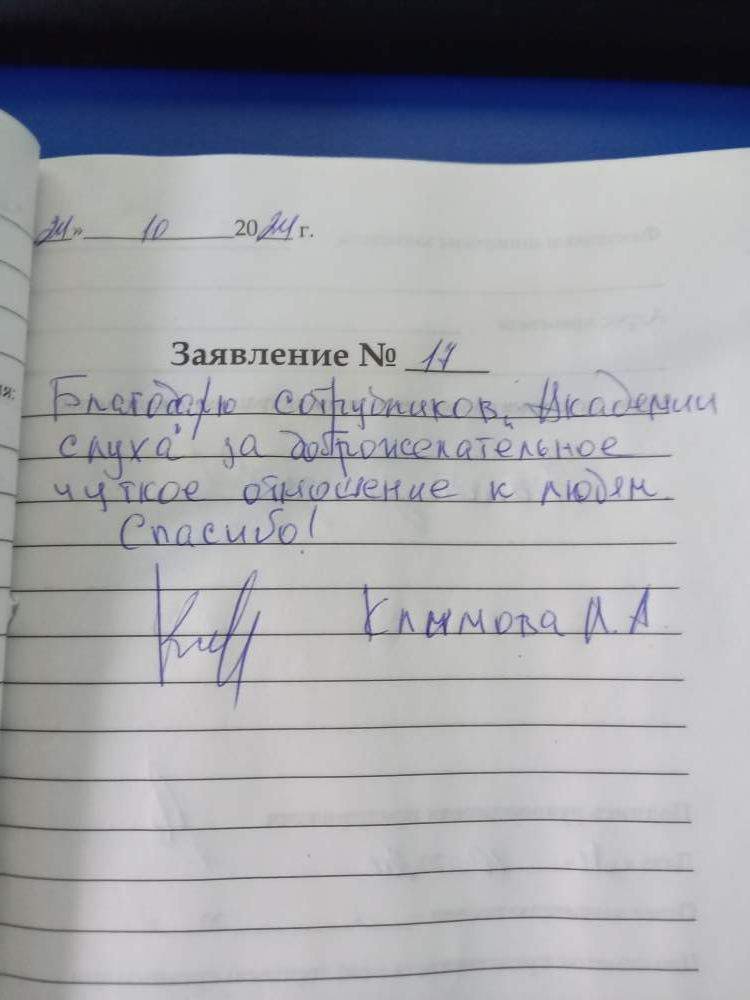 24» 10 2024 г.
Заявление № 17
Благодарю сотрудников „Академии
слуха" за доброжелательное
чуткое отношение к людям.
Спасибо!
Климова А.А